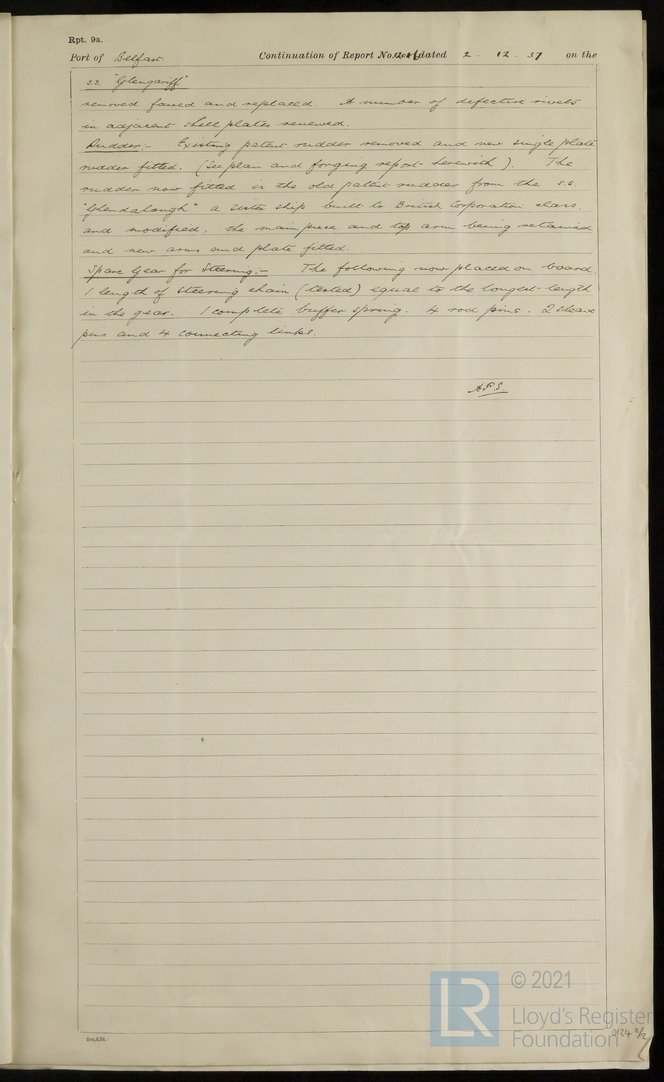 Rpt. 9a.
Port of Belfast. Continuation of Report No. dated 2 . 12 . 37 on the
s.s. "Glengariff"
removed faired and replaced. A number of defective rivets
in adjacent shell plates renewed.
Rudder:- Existing patent rudder removed and new single plate
rudder fitted. (See plan and forging report herewith). The
rudder now fitted is the old patent rudder from the s.s.
"Glendalough" a sister ship built to British Corporation class.
and modified, the main piece and top arm being retained
and new arms and plate fitted.
Spare Gear for Steering:- The following now placed on board.
1 length of steering chain (tested) equal to the longest length
in the gear. 1 complete buffer spring. 4 rod pins. 2 sheave
pins and 4 connecting links.
LR
© 2021
Lloyd's Register
Foundation
0124 2/2